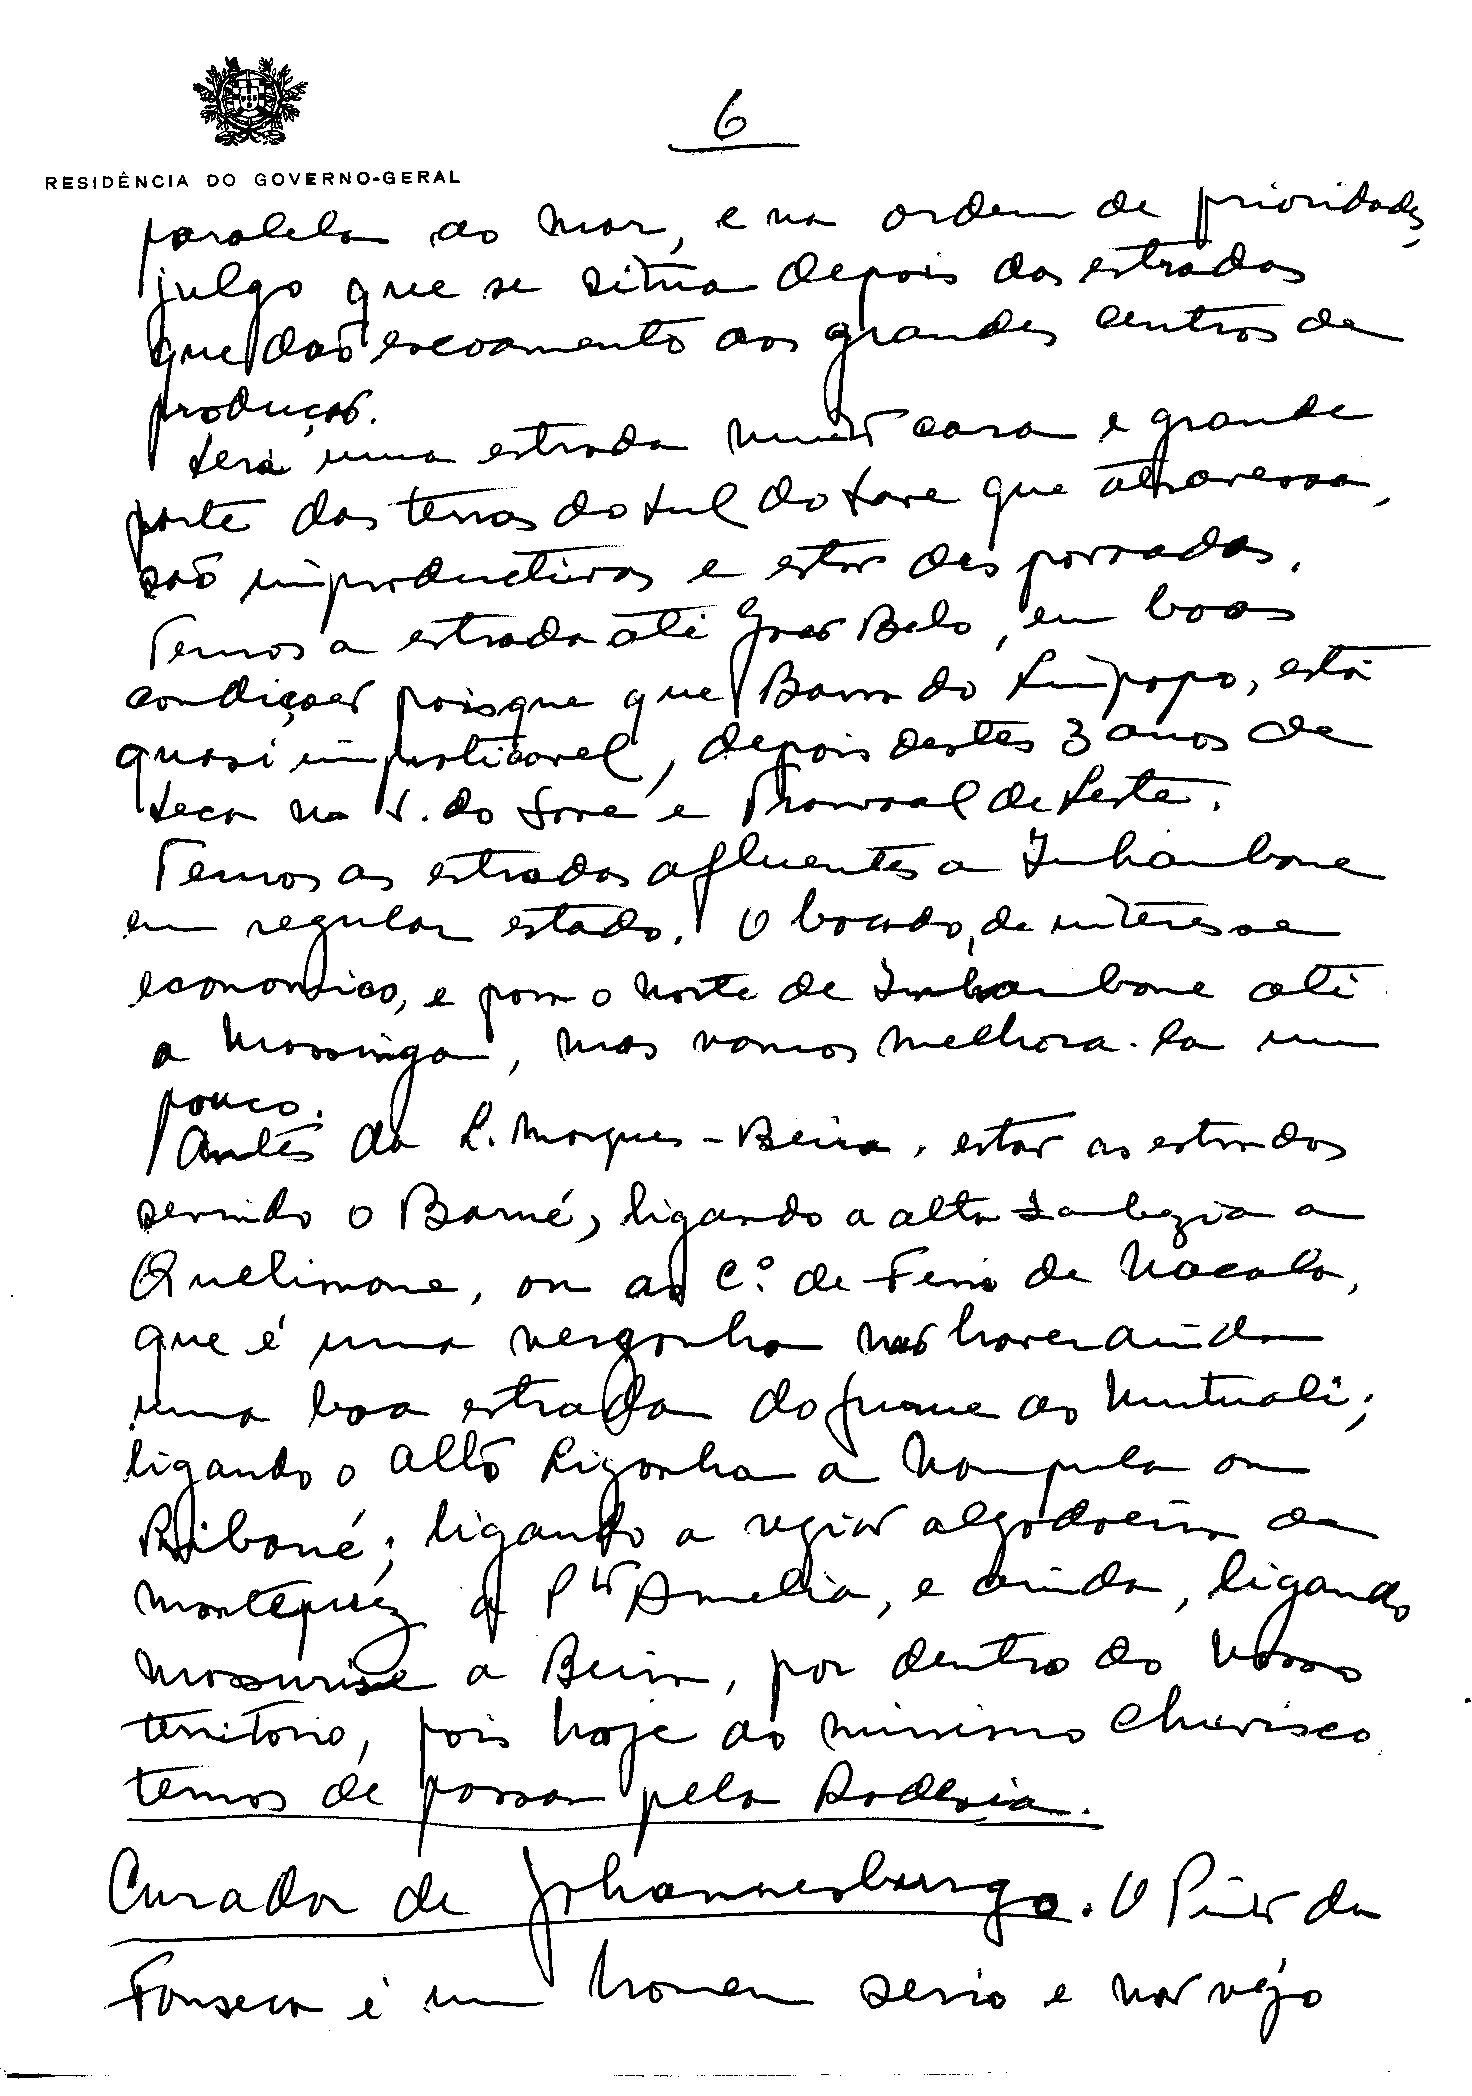 6
RESIDÊNCIA DO GOVERNO-GERAL
paralela ao mar, e na ordem de prioridades,
julgo que se situa depois das estradas
que dão escoamento aos grandes centros de
produção.
Será uma estrada muito cara e grande
parte das terras do Sul do Save que atravessa,
são improductivas e estão despovoadas.
Temos a estrada até João Belo, em boas
condições poisque que Barra do Limpopo, está
quasi impraticavel, depois destes 3 anos de
seca no S. do Save e Transvaal de Leste.
Temos as estradas afluentes a Inhambane
em regular estado. O bocado, de interesse
economico, e para o norte de Inhambane até
a Massinga, mas vamos melhora-la um
pouco.
Antes da L. Marques-Beira, estão as estradas
servindo o Barué, ligando a alta Zambezia a
Quelimane, ou ao C.º de Ferro de Nacala,
que é uma vergonha não haver ainda
uma boa estrada do Gurue ao Mutuali;
ligando o alto Ligonha a Nampula ou
Ribaué; ligando a região algodoeira de
Montepuez a Pto Amelia, e ainda, ligando
Mossurise a Beira, por dentro do nosso
territorio, pois hoje ao minimo chuvisco
temos de passar pela Rodesia.
Curador de Johannesburgo. O Pinto da
Fonseca é um homem serio e não vejo